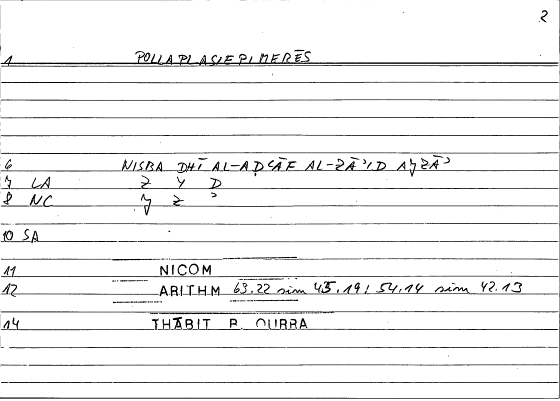 2
1 POLLAPLASIEPIMERĒS
6 NISBA DHĪ AL-AḌʿĀF AL-ZĀʾID AJZĀʾ
7 LA Z Y D
8 NC J Z ʾ
10 SA
11 NICOM
12 ARITHM 63.22 sim 45.19; 54.14 sim 42.13
14 THĀBIT B. QURRA